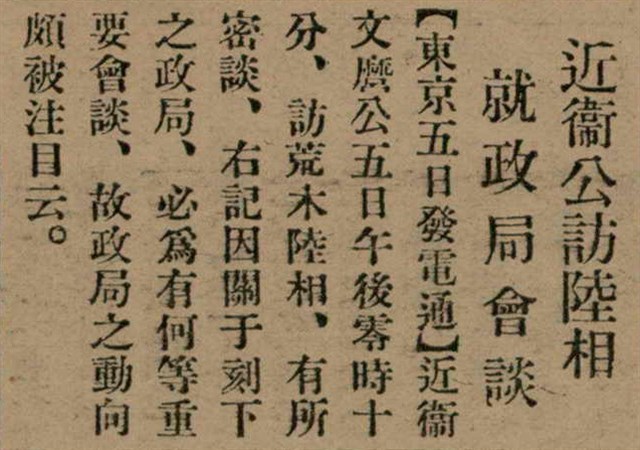 近衞公訪陸相
就政局會談
【東京五日發電通】近衞
文麿公五日午後零時十
分、訪荒木陸相、有所
密談、右記因關于刻下
之政局、必爲有何等重
要會談、故政局之動向
頗被注目云。